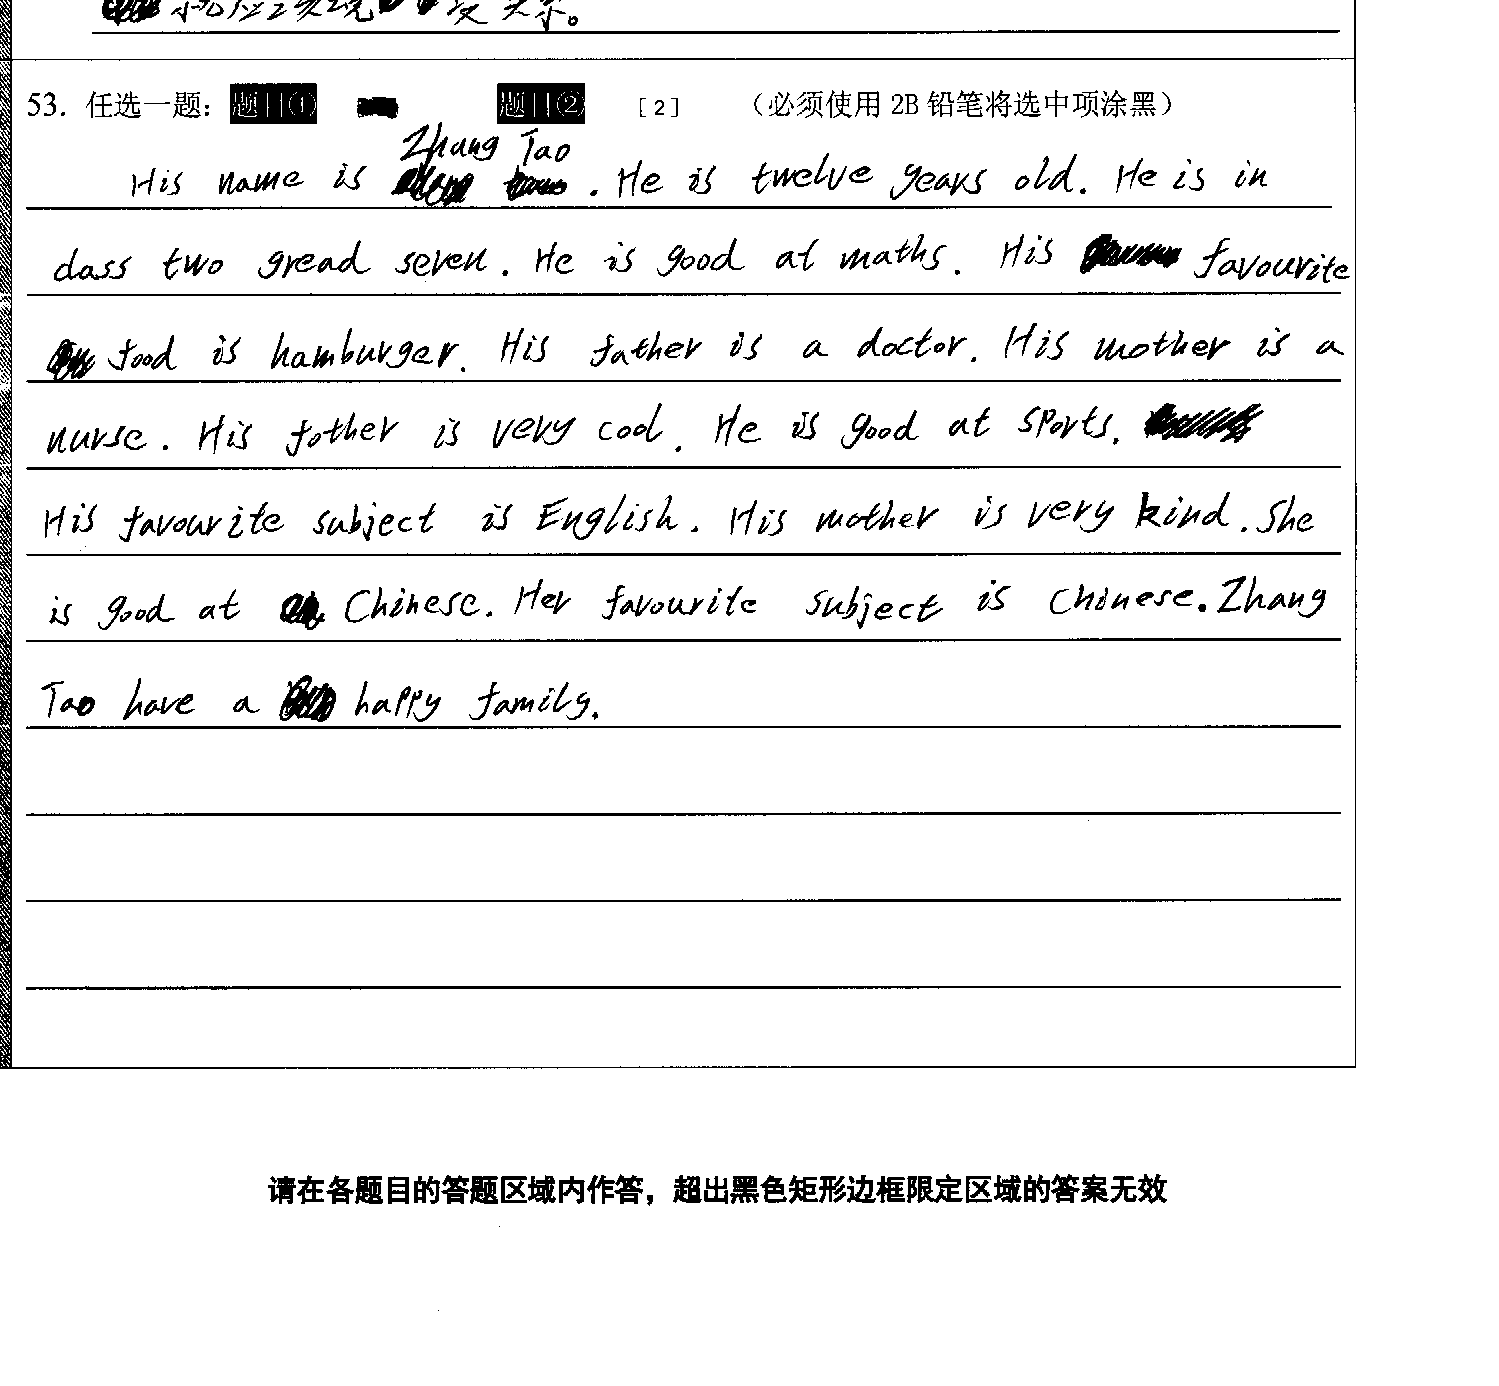 53. 任选一题： 题目① 题目② [2] （必须使用 2B 铅笔将选中项涂黑）
Zhang Tao
His name is . He is twelve years old. He is in
class two gread seven. He is good at maths. His favourite
food is hamburger. His father is a doctor. His mother is a
nurse. His fother is very cool. He is good at sports.
His favourite subject is English. His mother is very kind. She
is good at Chinese. Her favourite subject is Chinese. Zhang
Tao have a happy family.
请在各题目的答题区域内作答，超出黑色矩形边框限定区域的答案无效